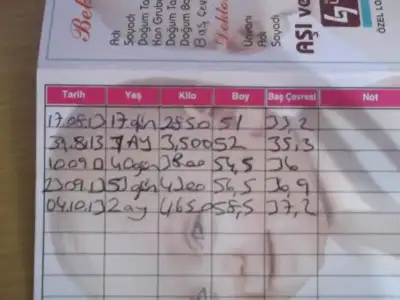 Bebe
Adı
Soyadı
Doğum Ta
Kan Grubu
Doğum Ta
Doğum Bo
Baş Çev
Dokto
Ünvanı
Adı
Soyadı
AŞI ve
ÖZEL LO
Tarih Yaş Kilo Boy Baş Çevresi Not
17.08.13 17 gün 2850 51 33,2
31.8.13 1 AY 3,500 52 35,3
10.09.13 40 gün 3800 54,5 36
23.09.13 53 gün 4300 56,5 36,9
04.10.13 2 ay 4650 58,5 37,2